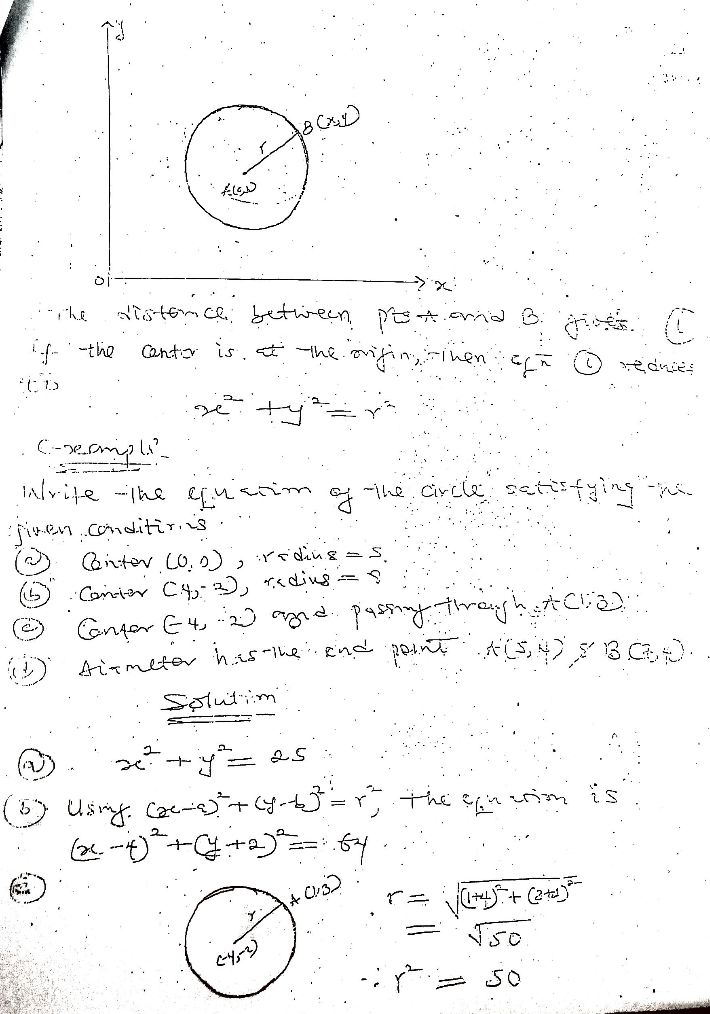 y
B(x,y)
r
A(a,b)
0
x
The distance between pts A and B gives. (1
if the center is at the origin, then eqn (1) reduces
to
x² + y² = r²
Example
Write the equation of the circle satisfying the
given conditions
(a) Center (0,0), radius = 5.
(b) Center (4,-2), radius = 8
(c) Center (-4,-2) and passing through A(1,3)
(d) Diameter has the end point A(5,4) & B
Solution
(a) x² + y² = 25
(b) Using (x-a)² + (y-b)² = r², the equation is
(x-4)² + (y+2)² = 64
A(1,3)
r
(-4,-2)
r = √(1+4)² + (3+2)²
= √50
∴ r² = 50